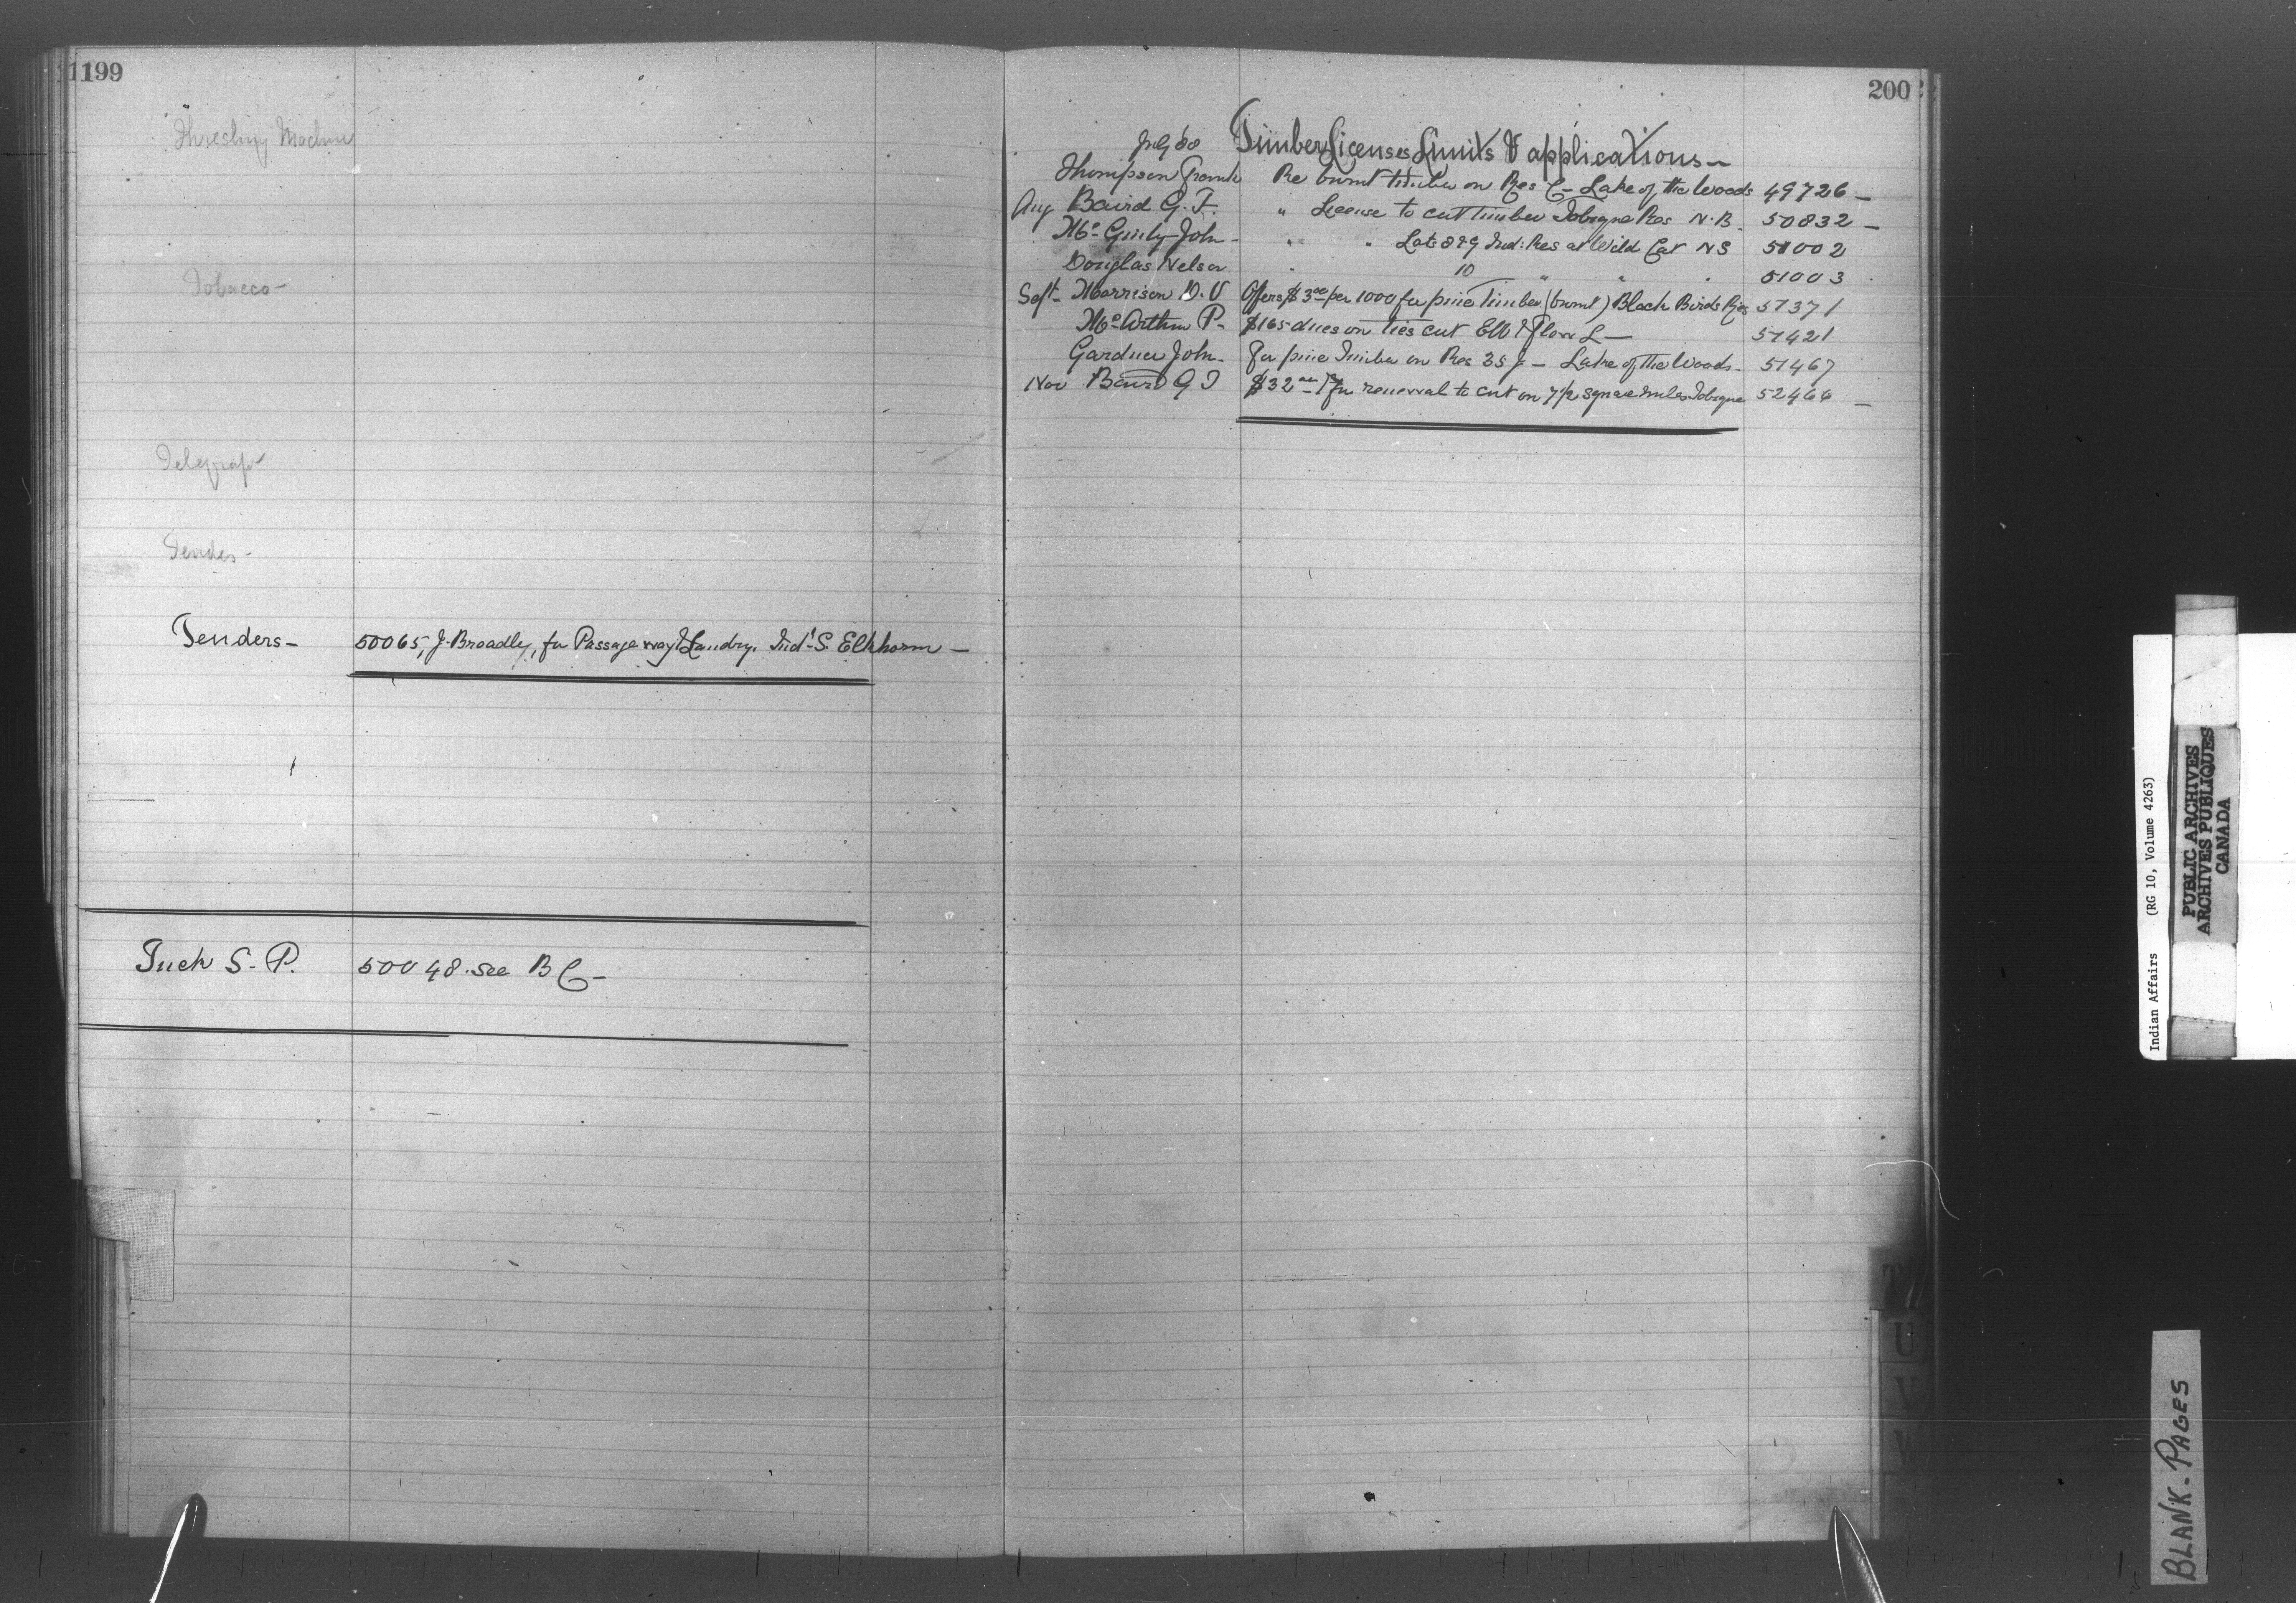 199
Threshing Machine
Tobacco –
Telegraph
Tender –
Tenders – 50065, J. Broadly, for Passage way & Laundry. Ind'l S. Elkhorn –
Tuck S. P. 50048. see B C –
200
July 88 Timber Licenses Limits & applications –
Thompson Frank Re burnt timber on Res C – Lake of the Woods 49726 –
Aug Baird G. T. " License to cut timber Tobique Res N. B. 50832 –
Mc Ginty John – " " Lots 8 & 9 Ind: Res at Wild Cat N S 51002
Douglas Nelson " 10 " " " 51003
Sept – Morrison D. V Offers $3 00 per 1000 for pine Timber (burnt) Black Birds Res 51371
Mc Arthur P. – $165 dues on ties cut & Flow L – 51421
Gardner John – For pine Timber on Res 35 J – Lake of the Woods – 51467
Nov Baird G T $32 for renewal to cut on 7 1/2 square miles Tobique 52466 –
T
U
V
W
Indian Affairs (RG 10, Volume 4263)
PUBLIC ARCHIVES
ARCHIVES PUBLIQUES
CANADA
BLANK - PAGES